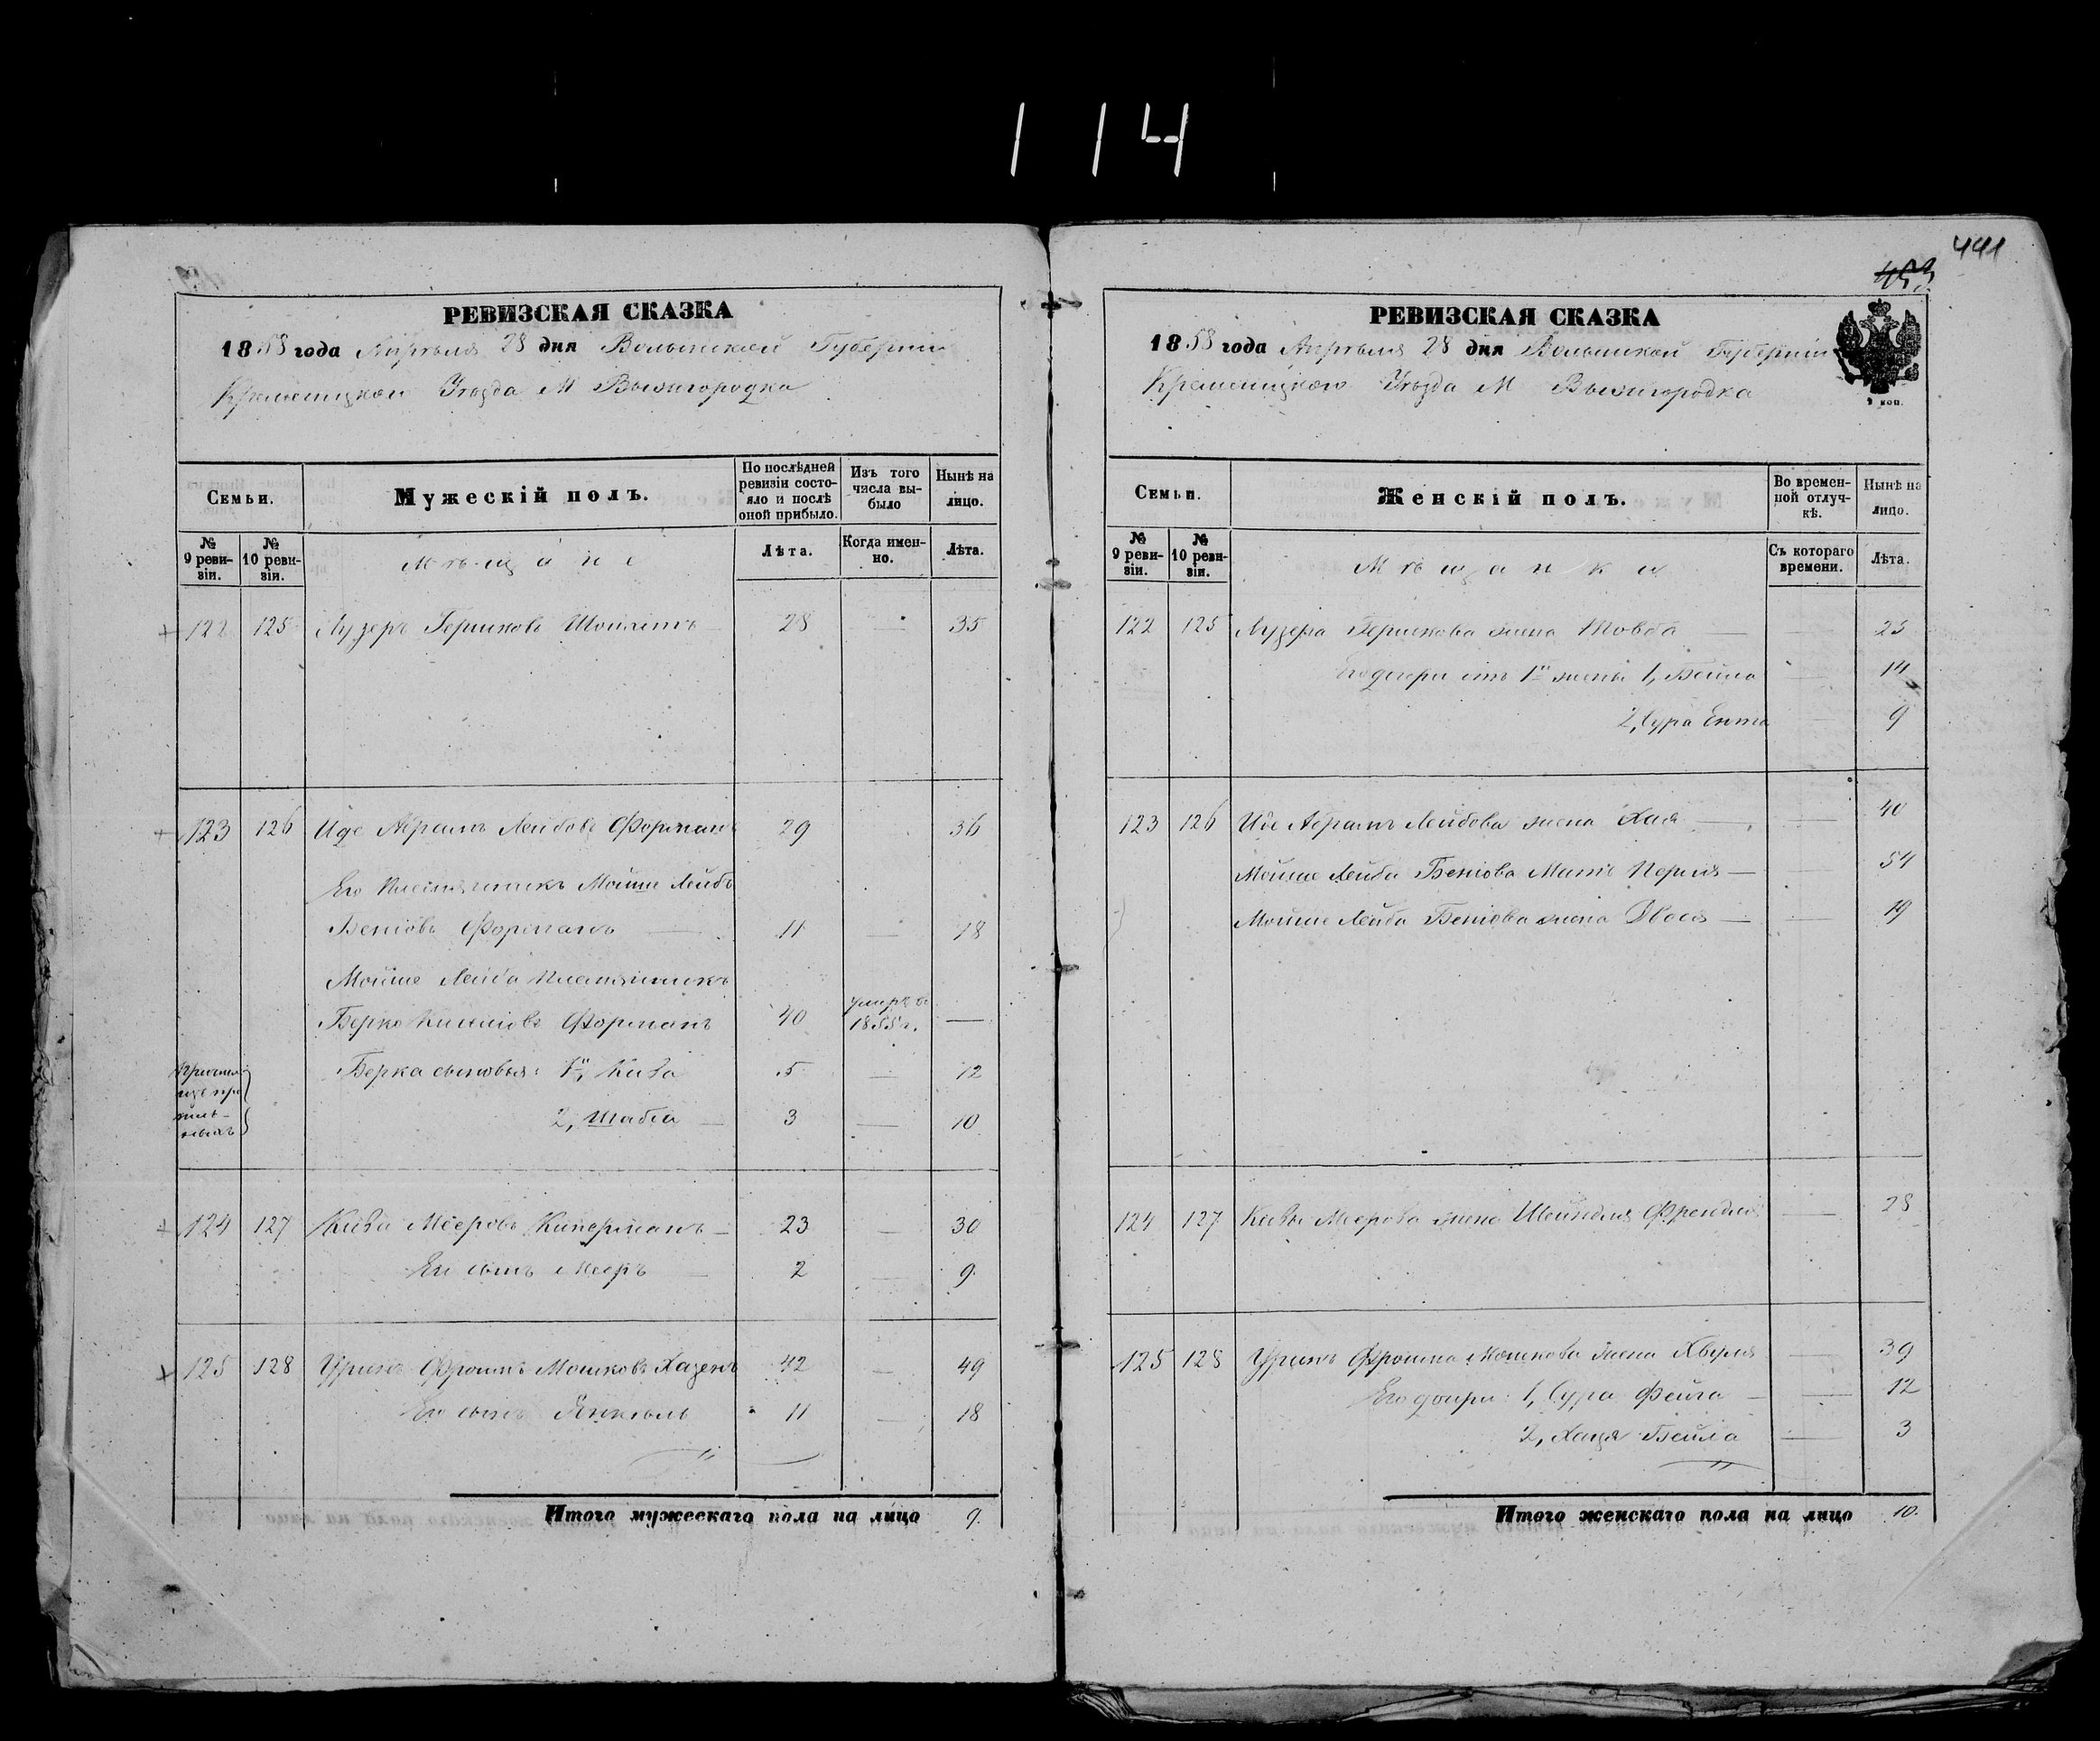 114
441
453
РЕВИЗСКАЯ СКАЗКА
1858 года Апрѣля 28 дня Волынской Губерніи
Кременецкаго Уѣзда М Вышгородка
Семьи.
Мужескій полъ.
По послѣдней ревизіи состояло и послѣ оной прибыло.
Изъ того числа выбыло
Нынѣ на лицо.
№ 9 ревизіи.
№ 10 ревизіи.
Мѣщане
Лѣта.
Когда именно.
Лѣта.
122 125 Лузеръ Гершковъ 28 — 35
123 126 Иде Абрамъ Лейбовъ Форманъ 29 36
Его племянникъ Мойше Лейба
Беніовъ Форманъ 11 — 18
Мойше Лейба племянникъ
Берко Форманъ 40 умеръ въ 1855 г. —
Берка сыновья: 1й, Кива 5 — 12
2, Шабса 3 — 10
124 127 Кива Мееровъ Киперманъ 23 — 30
Его сынъ Мееръ 2 — 9
125 128 Уринъ Фроимъ Мошковъ Хазенъ 42 — 49
Его сынъ Янкель 11 — 18
Итого мужескаго пола на лицо 9.
РЕВИЗСКАЯ СКАЗКА
1858 года Апрѣля 28 дня Волынской Губерніи
Кременецкаго Уѣзда М Вышгородка
Семьи.
Женскій полъ.
Во временной отлучкѣ.
Нынѣ на лицо.
№ 9 ревизіи.
№ 10 ревизіи.
Мѣщанки
Съ котораго времени.
Лѣта.
122 125 Лузера Гершкова жена Товба — 23
Его дочери отъ 1й жены 1, Бейла — 14
2, Сура Ента — 9
123 126 Иде Абрамъ Лейбова жена Хая — 40
Мойше Лейба Беніова Мать Перля — 54
Мойше Лейба Беніова жена Двося — 19
124 127 Кивы Меерова жена Шейндля Фрейдля — 28
125 128 Уринъ Фроима Мошкова жена — 39
Его дочери: 1, Сура Фейга — 12
2, Бейла — 3
Итого женскаго пола на лицо 10.